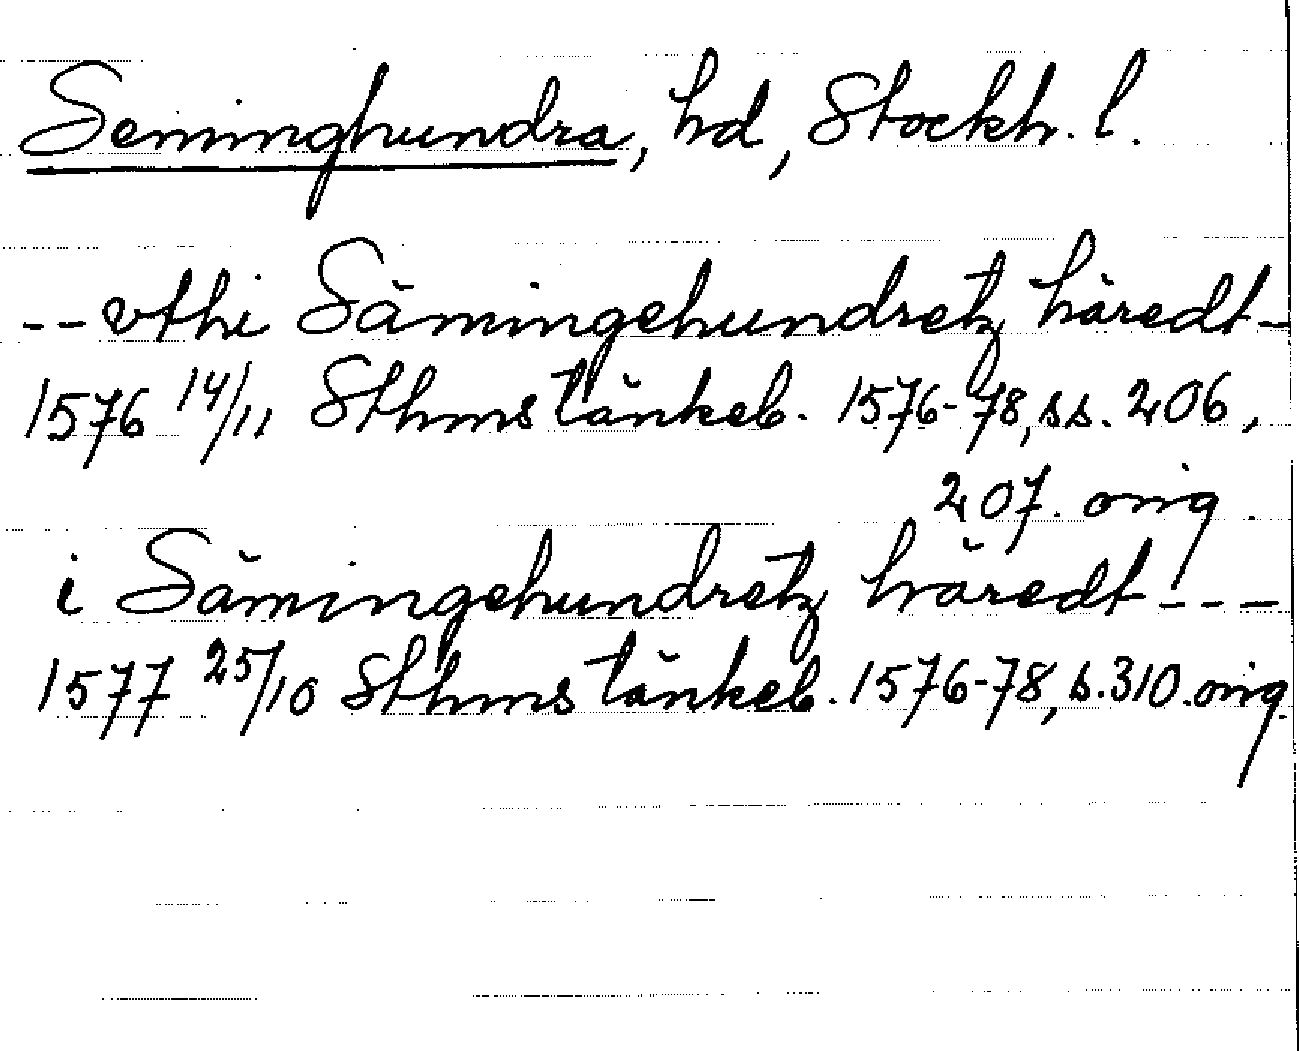 Seminghundra, hd, Stockh. l.
-- vthi Sämingehundretz häredt -
1576 14/11 Sthms tänkeb. 1576-78, ss. 206,
207. orig.
i Sämingehundretz häredt ---
1577 25/10 Sthms tänkeb. 1576-78, s. 310. orig.